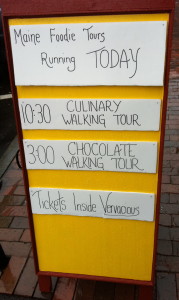 Maine Foodie Tours
Running TODAY
10:30 CULINARY
WALKING TOUR
3:00 CHOCOLATE
WALKING TOUR
Tickets Inside Vervacious